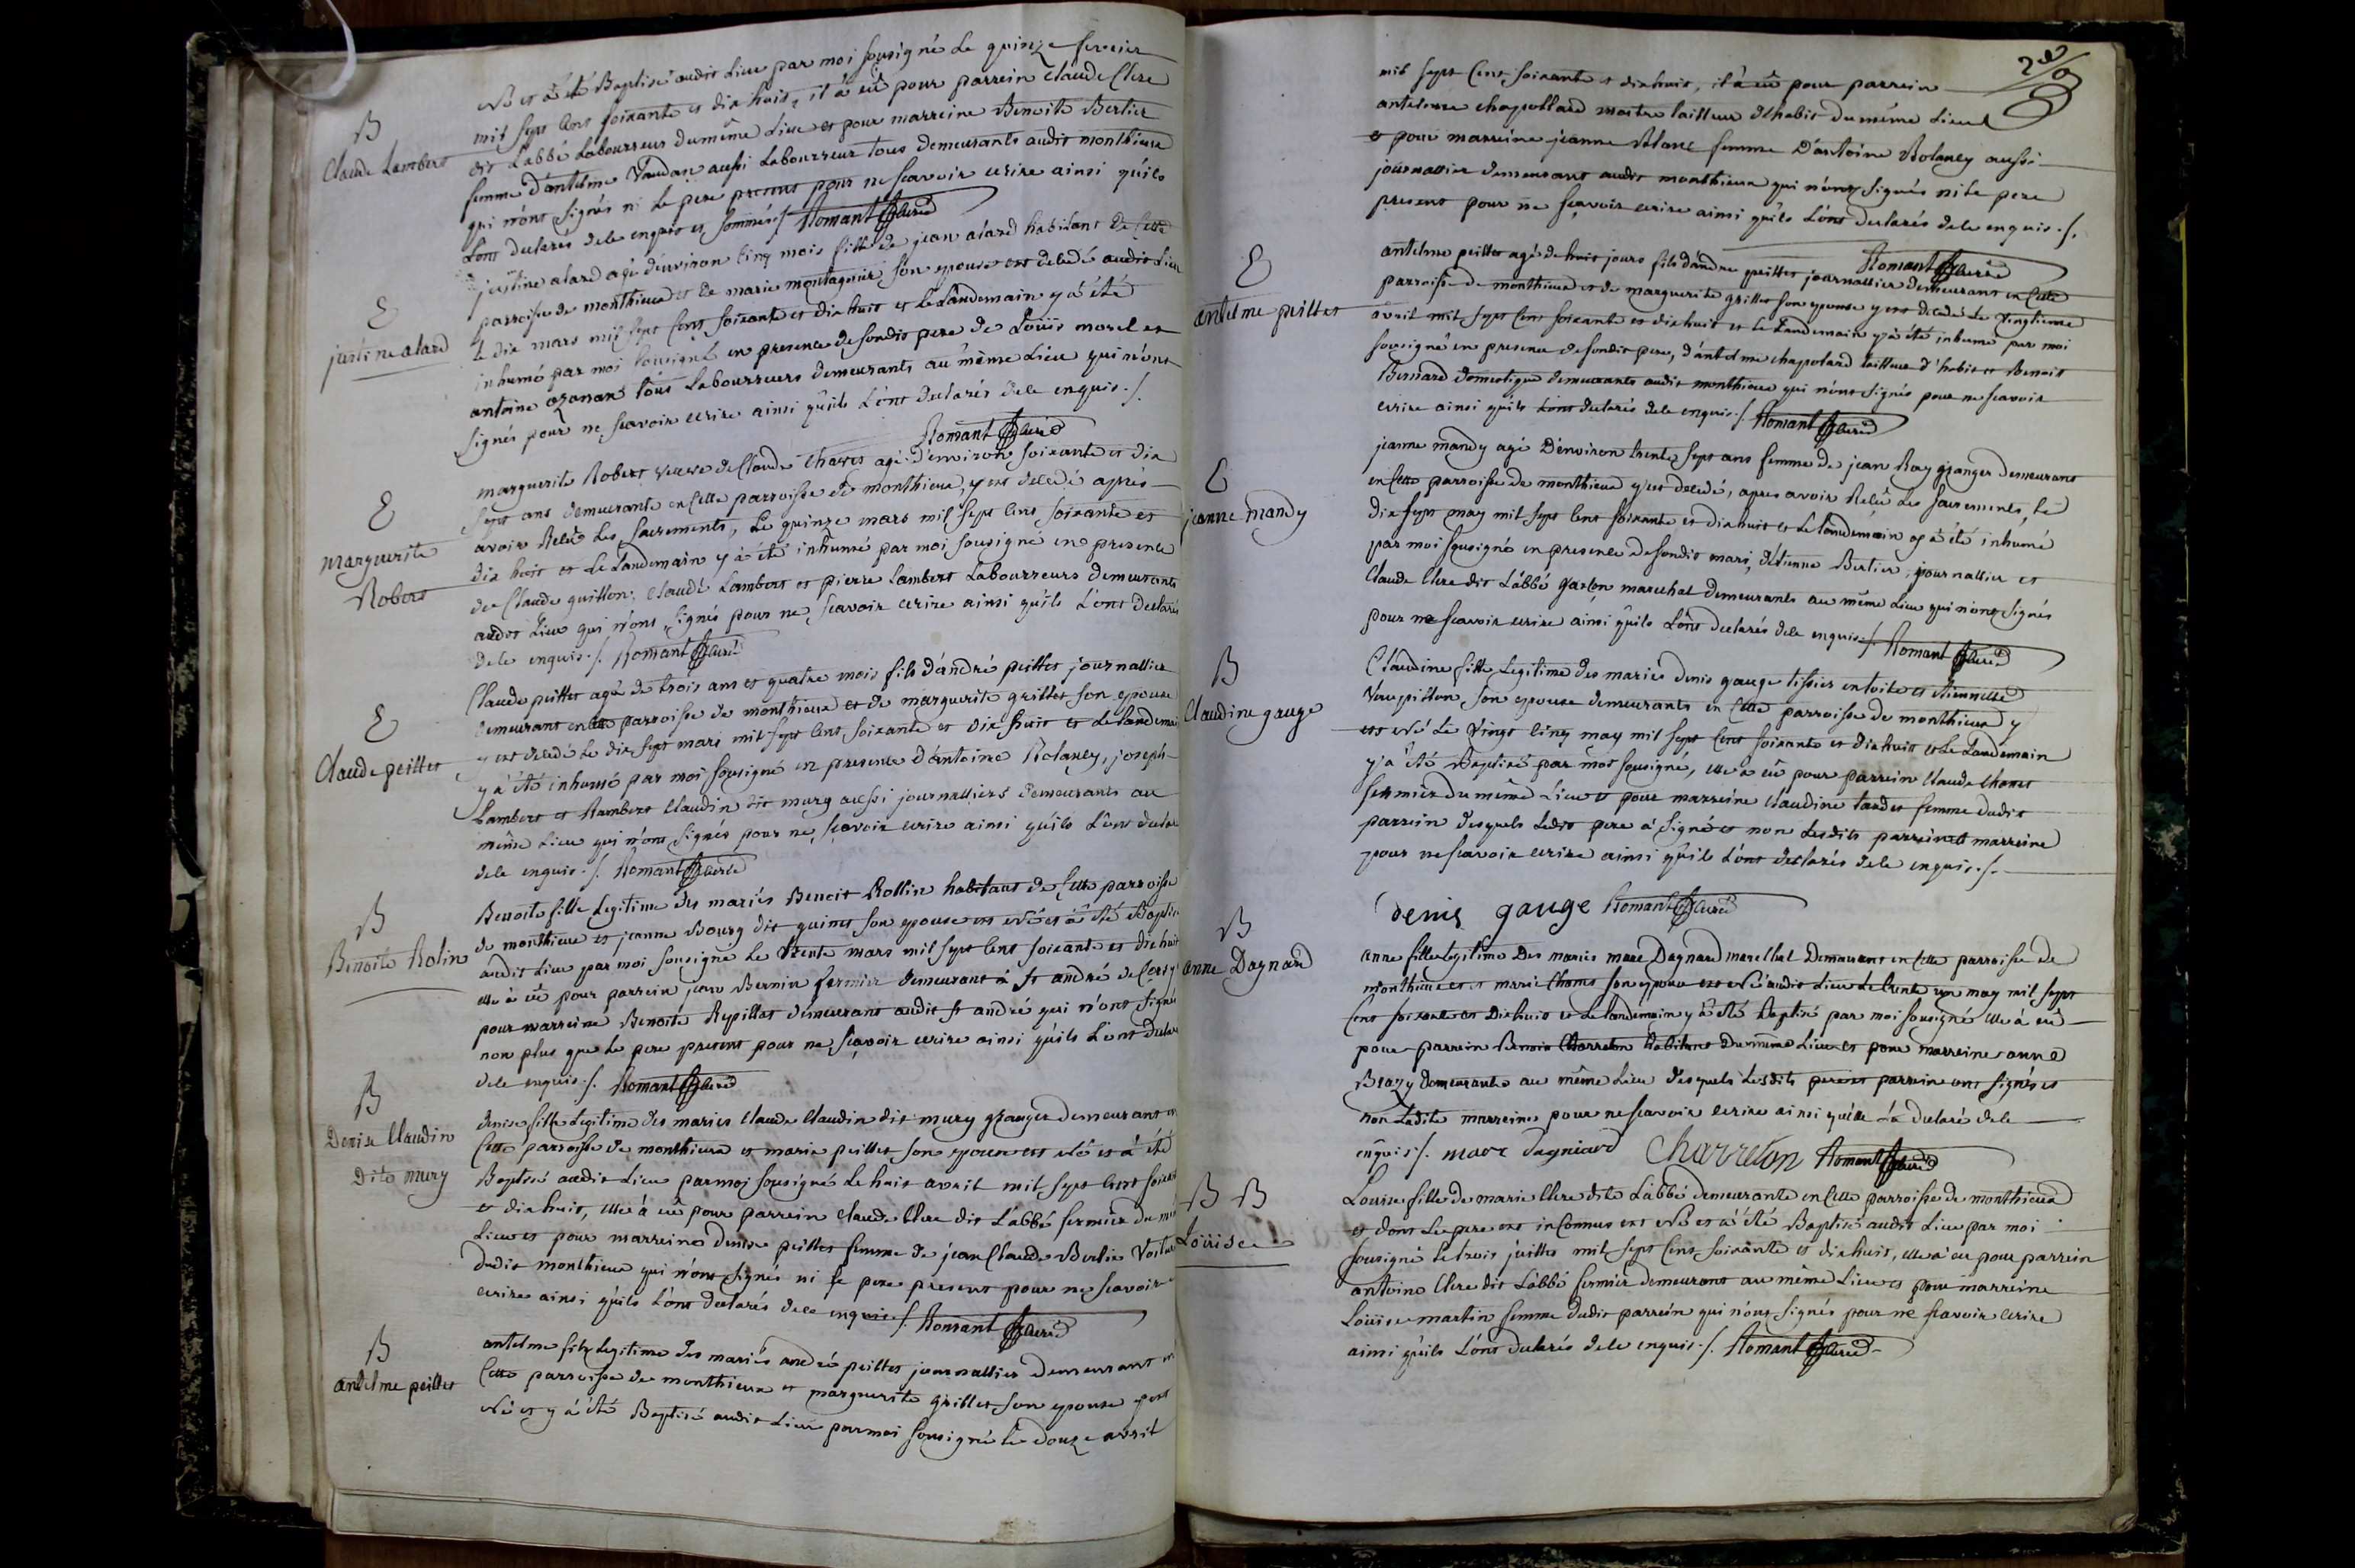 B
Claude Lambert
né et à été Baptisé audit Lieu par moi sousigné Le quinze fevrier
mil sept Cens soixante et dix huit, il à eû pour parrein Claude Clere
dit L'abbé Labourreur du même Lieu et pour marreine Benoite Berlier
femme d'antelme Vaudan aussi Labourreur tous demeurants audit monthieux
qui n'ont signés ni Le pere present pour ne scavoir ecrire ainsi quils
L'ont declarés de ce enquis et sommés ./. Romant Curé
E
justine alard
justine alard agé d'environ cinq mois fille de jean alard habitant de Cette
parroisse de monthieux et de marie montagnier son epouse est decedé audit Lieu
le dix mars mil sept Cens soixante et dix huit et Le Landemain y à été
inhumé par moi sousigné en presence de sondit pere de Loüis morel et
antoine ozanan tous Labourreurs demeurants au même Lieu qui n'ont
signés pour ne scavoir ecrire ainsi quils L'ont declarés de ce enquis ./.
Romant Curé
E
marguerite
Robert
marguerite Robert veuve de Claude Charves agé d'environ soixante et dix
sept ans demeurante en Cette parroisse de monthieux, y est decedé après
avoir Reçû Les Sacrements, Le quinze mars mil sept Cens soixante et
dix huit et Le Landemain y à été inhumé par moi sousigné en presence
de Claude guillon, Claude Lambert et pierre Lambert Labourreurs demeurants
audit Lieu qui n'ont signés pour ne scavoir ecrire ainsi quils L'ont declarés
de ce enquis ./. Romant Curé
E
Claude peillet
Claude peillet agé de trois ans et quatre mois fils d'andré peillet journallier
demeurant en Cette parroisse de monthieux et de marguerite grillet son epouse
y est decedé Le dix sept mars mil sept Cens soixante et dix huit et Le landemain
y à été inhumé par moi sousigné en presence d'antoine Rolancy, joseph
Lambert et Rambert Claudin dit mury aussi journalliers demeurants au
même Lieu qui n'ont signés pour ne scavoir ecrire ainsi quils L'ont declar
de ce enquis ./. Romant Curé
B
Benoite Rolin
Benoite fille Legitime des mariés Benoit Rollin habitant de Cette parroisse
de monthieux et jeanne Bourg dit quinet son epouse est né et à été Baptisé
audit Lieu par moi sousigné Le trente mars mil sept Cens soixante et dix huit
elle à eû pour parrein jean Bernin fermier demeurant à St andré de Corcy
pour marreine Benoite Repillat demeurant audit St andré qui n'ont signé
non plus que Le pere present pour ne scavoir ecrire ainsi quils L'ont declar
de ce enquis ./. Romant Curé
B
Denise Claudin
Dite mury
denise fille Legitime des mariés Claude Claudin dit mury granger demeurant en
Cette parroisse de monthieux et marie peillet son epouse est né et à été
Baptisé audit Lieu par moi sousigné Le huit avril mil sept Cens soixante
et dix huit, elle à eû pour parrein Claude Clere dit L'abbé fermier du mê
Lieu et pour marreine denise peillet femme de jean Claude Berlie
dudit monthieux qui n'ont signés ni Le pere present pour ne scavoir
ecrire ainsi quils L'ont declarés de ce enquis ./. Romant Curé
B
antelme peillet
antelme fils Legitime des mariés andré peillet journallier demeurant en
Cette parroisse de monthieux et marguerite grillet son epouse y est
né et y à été Baptisé audit Lieu par moi sousigné Le douze avril
mil sept Cens soixante et dix huit, il à eû pour parrein
antelme chapollard maitre tailleur d'habit du même Lieu
et pour marreine jeanne Blanc femme D'antoine Rolancy aussi
journallier demeurant audit monthieux qui n'ont signés ni le pere
present pour ne scavoir ecrire ainsi quils L'ont declarés de ce enquis ./.
Romant Curé
E
antelme peillet
antelme peillet agé de huit jours fils d'andré peillet journallier demeurant en Cette
parroisse de monthieux et de marguerite grillet son epouse y est decedé Le vingtieme
avril mil sept Cens soixante et dix huit et Le Landemain y à été inhumé par moi
sousigné en presence de sondit pere, d'antelme chapolard tailleur d'habit et Benoit
Bernard domestique demeurants audit monthieux qui n'ont signés pour ne scavoir
ecrire ainsi quils L'ont declarés de ce enquis ./. Romant Curé
E
jeanne mandy
jeanne mandy agé D'environ trente sept ans femme de jean Ray granger demeurant
en Cette parroisse de monthieux y est decedé, apres avoir Reçû Les Sacrements, le
dix sept may mil sept Cens soixante et dix huit et Le Landemain y à été inhumé
par moi sousigné en presence de sondit mari, d'étienne Berlier journallier et
Claude Clere dit L'abbé garçon marechal demeurants au même Lieu qui n'ont signés
pour ne scavoir ecrire ainsi quils L'ont declarés de ce enquis ./. Romant Curé
B
Claudine gauge
Claudine fille Legitime des mariés denis gauge tissier en toile et étiennette
Vaupillon son epouse demeurants en Cette parroisse de monthieux y
est né Le vingt cinq may mil sept Cens soixante et dix huit et Le Landemain
y à été Baptisé par moi sousigné, elle à eû pour parrein Claude Chanet
fermier du même Lieu et pour marreine Claudine tardet femme dudit
parrein desquels Ledit pere à signé et non Lesdits parrein et marreine
pour ne scavoir ecrire ainsi quils L'ont declarés de ce enquis ./.
denis gauge Romant Curé
B
anne Dagnard
anne fille Legitime Des mariés marc Dagnard marechal Demeurant en Cette parroisse de
monthieux et marie Chanet son epouse est né audit Lieu Le trente un may mil sept
Cens soixante et Dix huit et Le landemain y à été Baptisé par moi sousigné elle à eû
pour parrein Benoit Charreton habitant Du même Lieu et pour marreine anne
Brazy demeurante au même Lieu desquels Lesdits pere et parrein ont signés et
non Ladite marreine pour ne scavoir ecrire ainsi qu'elle L'a declaré de ce
enquis ./. marc dagniard Charreton Romant Curé
B B
Loüise
Louise fille de marie Clere dite L'abbé demeurante en Cette parroisse de monthieux
et dont Le pere est inConnus est né et à été Baptisé audit Lieu par moi
sousigné Le trois juillet mil sept Cens soixante et dix huit, elle à eu pour parrein
antoine Clere dit L'abbé fermier demeurant au même Lieu et pour marreine
Loüise martin femme dudit parrein qui n'ont signés pour ne scavoir ecrire
ainsi quils L'ont declarés de ce enquis ./. Romant Curé